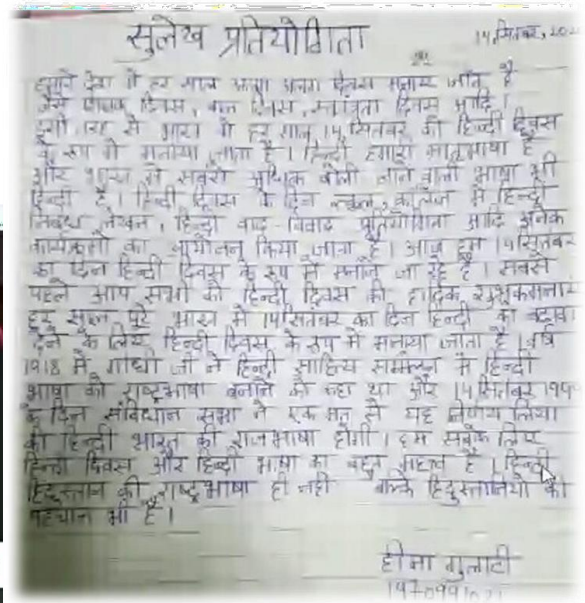 सुलेख प्रतियोगिता
14 सितंबर, 202
हमारे देश में हर साल अलग अलग दिवस मनाए जाते हैं
जैसे शिक्षक दिवस, बाल दिवस, स्वतंत्रता दिवस आदि।
इसी तरह से भारत में हर साल 14 सितंबर को हिन्दी दिवस
के रूप में मनाया जाता है। हिन्दी हमारी मातृभाषा है
और भारत में सबसे अधिक बोली जाने वाली भाषा भी
हिन्दी है। हिन्दी दिवस के दिन स्कूल, कॉलेज में हिन्दी
निबंध लेखन, हिन्दी वाद-विवाद प्रतियोगिता आदि अनेक
कार्यक्रमों का आयोजन किया जाता है। आज हम 14 सितंबर
का दिन हिन्दी दिवस के रूप में मनाने जा रहे हैं। सबसे
पहले आप सभी को हिन्दी दिवस की हार्दिक शुभकामनाएं
हर साल पूरे भारत में 14 सितंबर का दिन हिन्दी को बढ़ावा
देने के लिए हिन्दी दिवस के रूप में मनाया जाता है। वर्ष
1918 में गांधी जी ने हिन्दी साहित्य सम्मेलन में हिन्दी
भाषा को राष्ट्रभाषा बनाने को कहा था और 14 सितंबर
के दिन संविधान सभा ने एक मत से यह निर्णय लिया
की हिन्दी भारत की राजभाषा होगी। हम सबके लिए
हिन्दी दिवस और हिन्दी भाषा का बहुत महत्व है। हिन्दी
हिंदुस्तान की राष्ट्रभाषा ही नहीं बल्कि हिंदुस्तानियों की
पहचान भी है।
हीमा गुलाटी